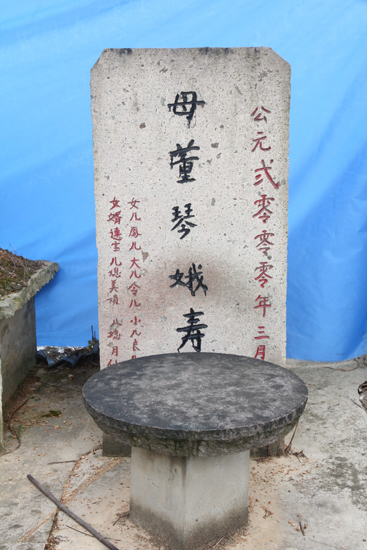 公元弍零零零年三月
母董琴娥寿
女儿凤儿大儿令儿小儿良
女婿连生儿媳美贞儿媳月